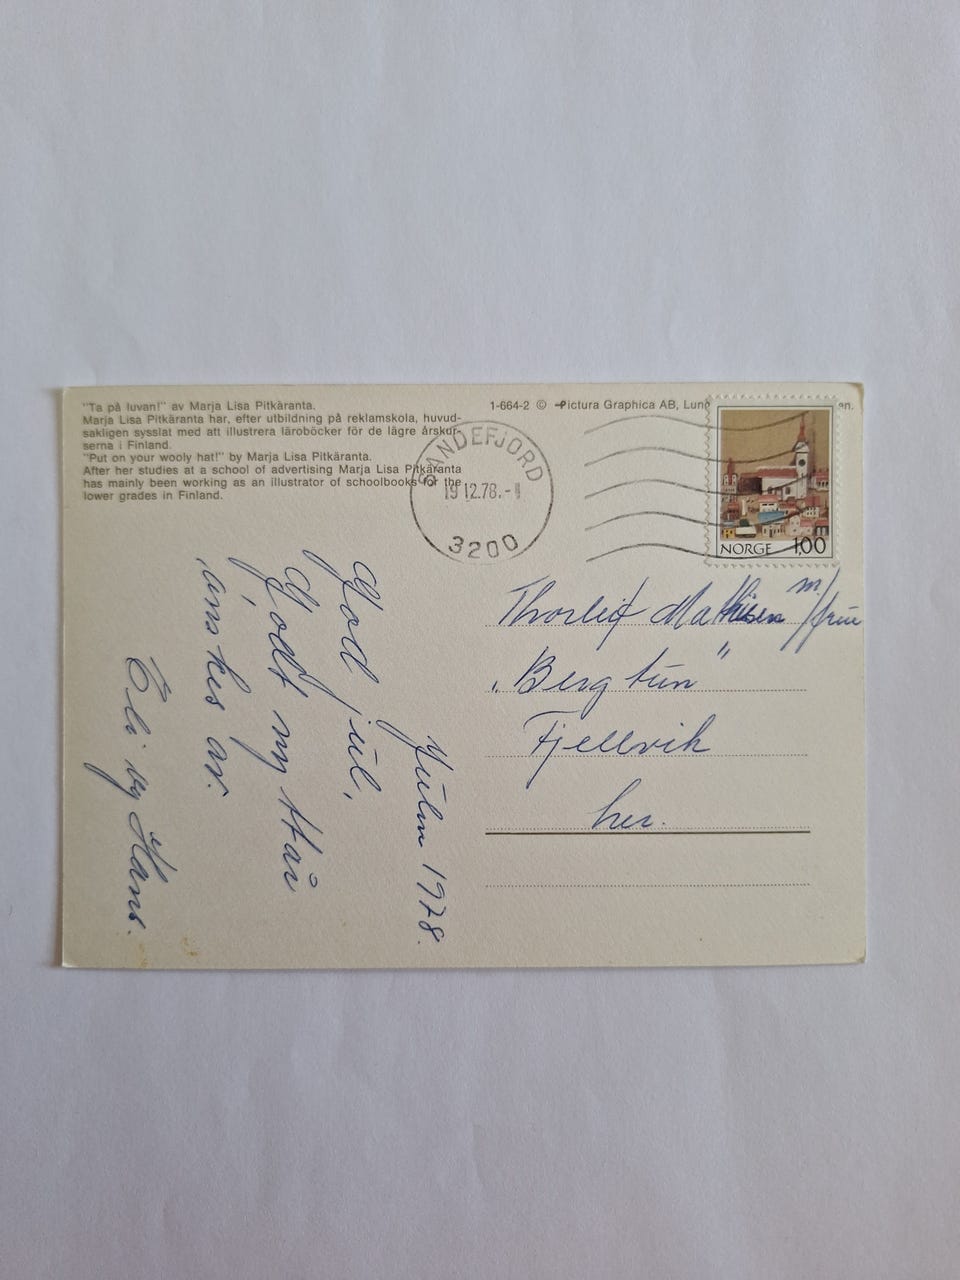 "Ta på luvan!" av Marja Lisa Pitkäranta.
Marja Lisa Pitkäranta har, efter utbildning på reklamskola, huvud-
sakligen sysslat med att illustrera läroböcker för de lägre årskur-
serna i Finland.
"Put on your wooly hat!" by Marja Lisa Pitkäranta.
After her studies at a school of advertising Marja Lisa Pitkäranta
has mainly been working as an illustrator of schoolbooks for the
lower grades in Finland.
1-664-2 © Pictura Graphica AB, Lund
en.
SANDEFJORD
19 12.78.-1
3200
NORGE 1,00
Julen 1978.
God jul,
Godt nytt år
ønskes av.
Eli og Hans.
Thorleif Mathisen m/frue
"Bergtun"
Fjellvik
her.